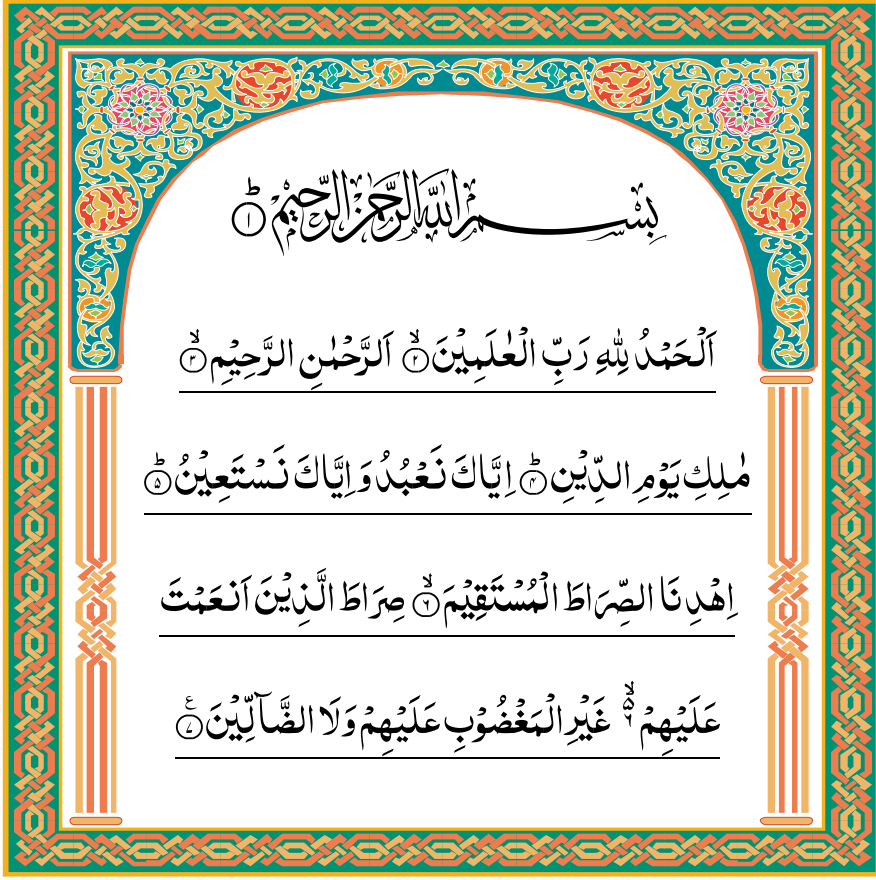 بِسْمِ اللّٰهِ الرَّحْمٰنِ الرَّحِيْمِ ؕ۝۱
اَلْحَمْدُ لِلّٰهِ رَبِّ الْعٰلَمِيْنَ ۙ۝۲ الرَّحْمٰنِ الرَّحِيْمِ ۙ۝۳
مٰلِكِ يَوْمِ الدِّيْنِ ؕ۝۴ اِيَّاكَ نَعْبُدُ وَ اِيَّاكَ نَسْتَعِيْنُ ؕ۝۵
اِهْدِنَا الصِّرَاطَ الْمُسْتَقِيْمَ ۙ۝۶ صِرَاطَ الَّذِيْنَ اَنْعَمْتَ
عَلَيْهِمْ ۙ۵۶ غَيْرِ الْمَغْضُوْبِ عَلَيْهِمْ وَلَا الضَّآلِّيْنَ ۝۷ ع